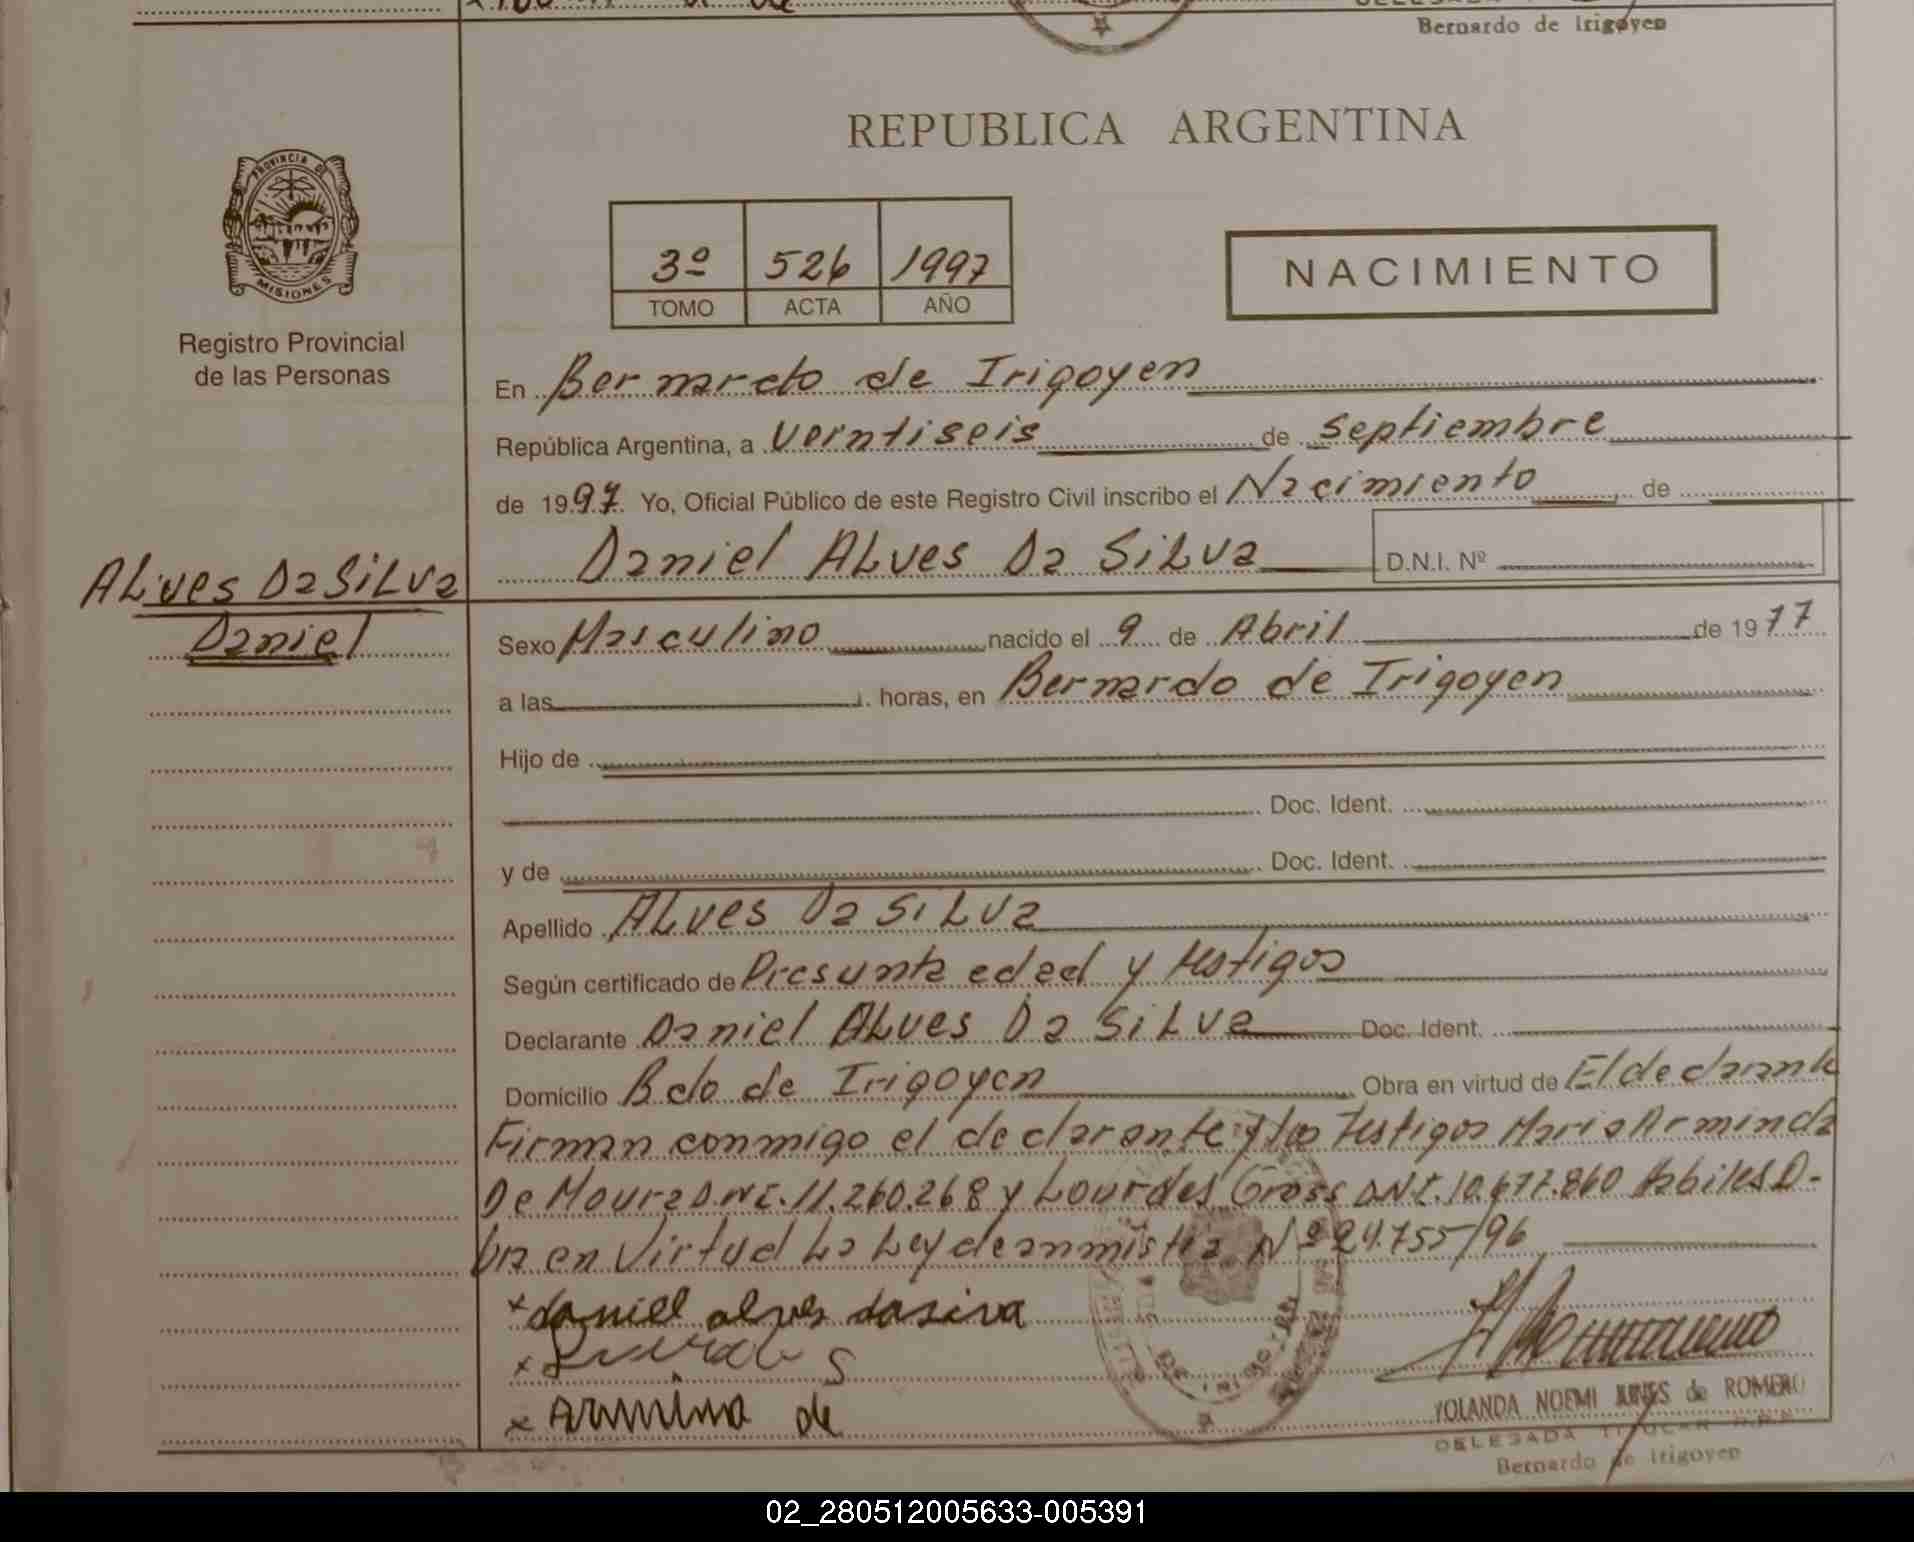 Bernardo de Irigoyen
REPUBLICA ARGENTINA
PROVINCIA DE
MISIONES
Registro Provincial
de las Personas
3º 526 1997
TOMO ACTA AÑO
NACIMIENTO
En Bernardo de Irigoyen
República Argentina, a Veintiseis de Septiembre
de 1997. Yo, Oficial Público de este Registro Civil inscribo el Nacimiento de
Daniel ALves Da SiLva D.N.I. Nº
ALves Da SiLva
Daniel
Sexo Masculino nacido el 9 de Abril de 1977
a las horas, en Bernardo de Irigoyen
Hijo de
Doc. Ident.
y de Doc. Ident.
Apellido ALves Da SiLva
Según certificado de Presunta edad y testigos
Declarante Daniel ALves Da SiLva Doc. Ident.
Domicilio Bdo de Irigoyen Obra en virtud de El declarante
Firman conmigo el declarante y los Testigos Maria Arminda
De Moura D.N.I. 11.260.268 y Lourdes Gross D.N.I. 10.677.860 Habiles O-
bra en Virtud La Ley de anmistia Nº 24.755/96
x daniel alves dasiva
x
x Armina de
YOLANDA NOEMI JUNES de ROMERO
DELEGADA TITULAR
Bernardo de Irigoyen
02_280512005633-005391